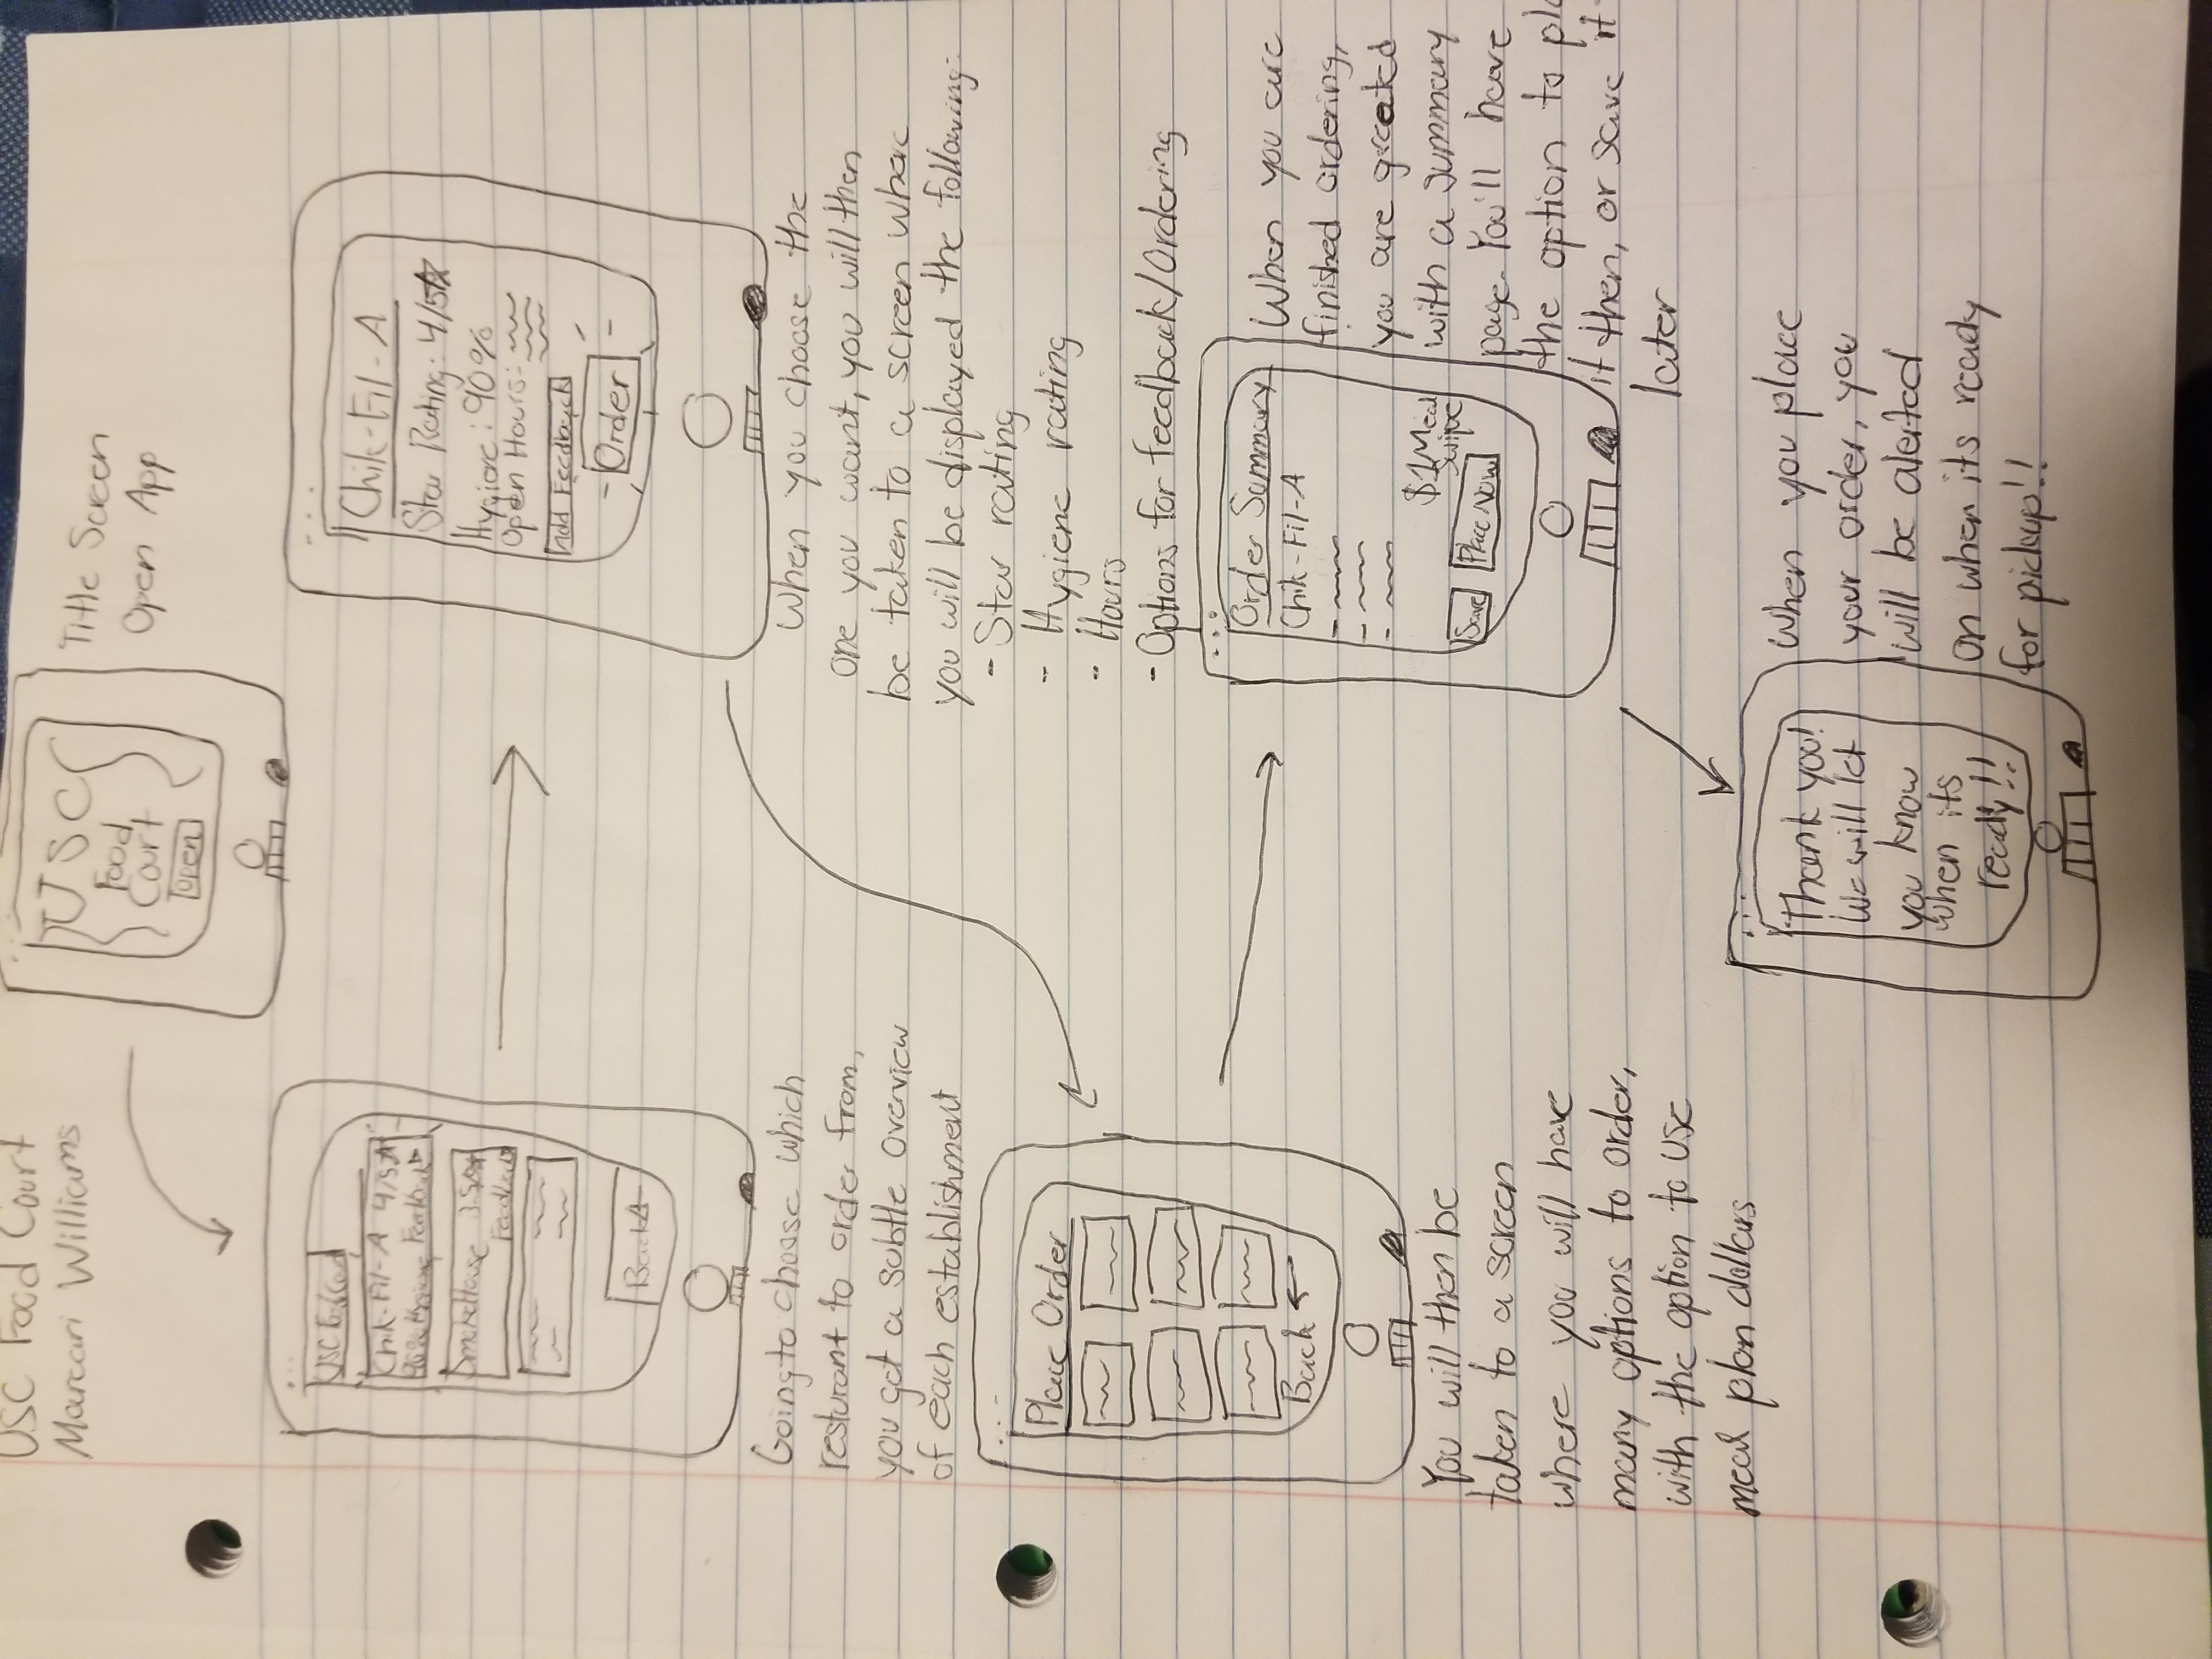 USC Food Court
Marcari Williams
USC
Food
Court
Open
Title Screen
Open App
USC Food Court
Chik-Fil-A 4/5
90% Hygiene Feedback
SmokeHouse 3.5/5
Feedback
Back
Going to choose which
resturant to order from,
you get a subtle overview
of each establishment
Chik-Fil-A
Star Rating: 4/5
Hygiene: 90%
Open Hours:
Add Feedback
Order
When you choose the
one you want, you will then
be taken to a screen where
you will be displayed the following:
- Star rating
- Hygiene rating
- Hours
- Options for feedback/Ordering
Place Order
Back ←
You will then be
taken to a screen
where you will have
many options to order,
with the option to use
meal plan dollars
Order Summary
Chik-Fil-A
$1 Meal
Swipe
Save Place Now
When you are
finished ordering,
you are greeted
with a summary
page. You'll have
the option to pla
it then, or save it
later
Thank you!
We will let
you know
when its
ready!!
When you place
your order, you
will be alerted
on when its ready
for pickup!!